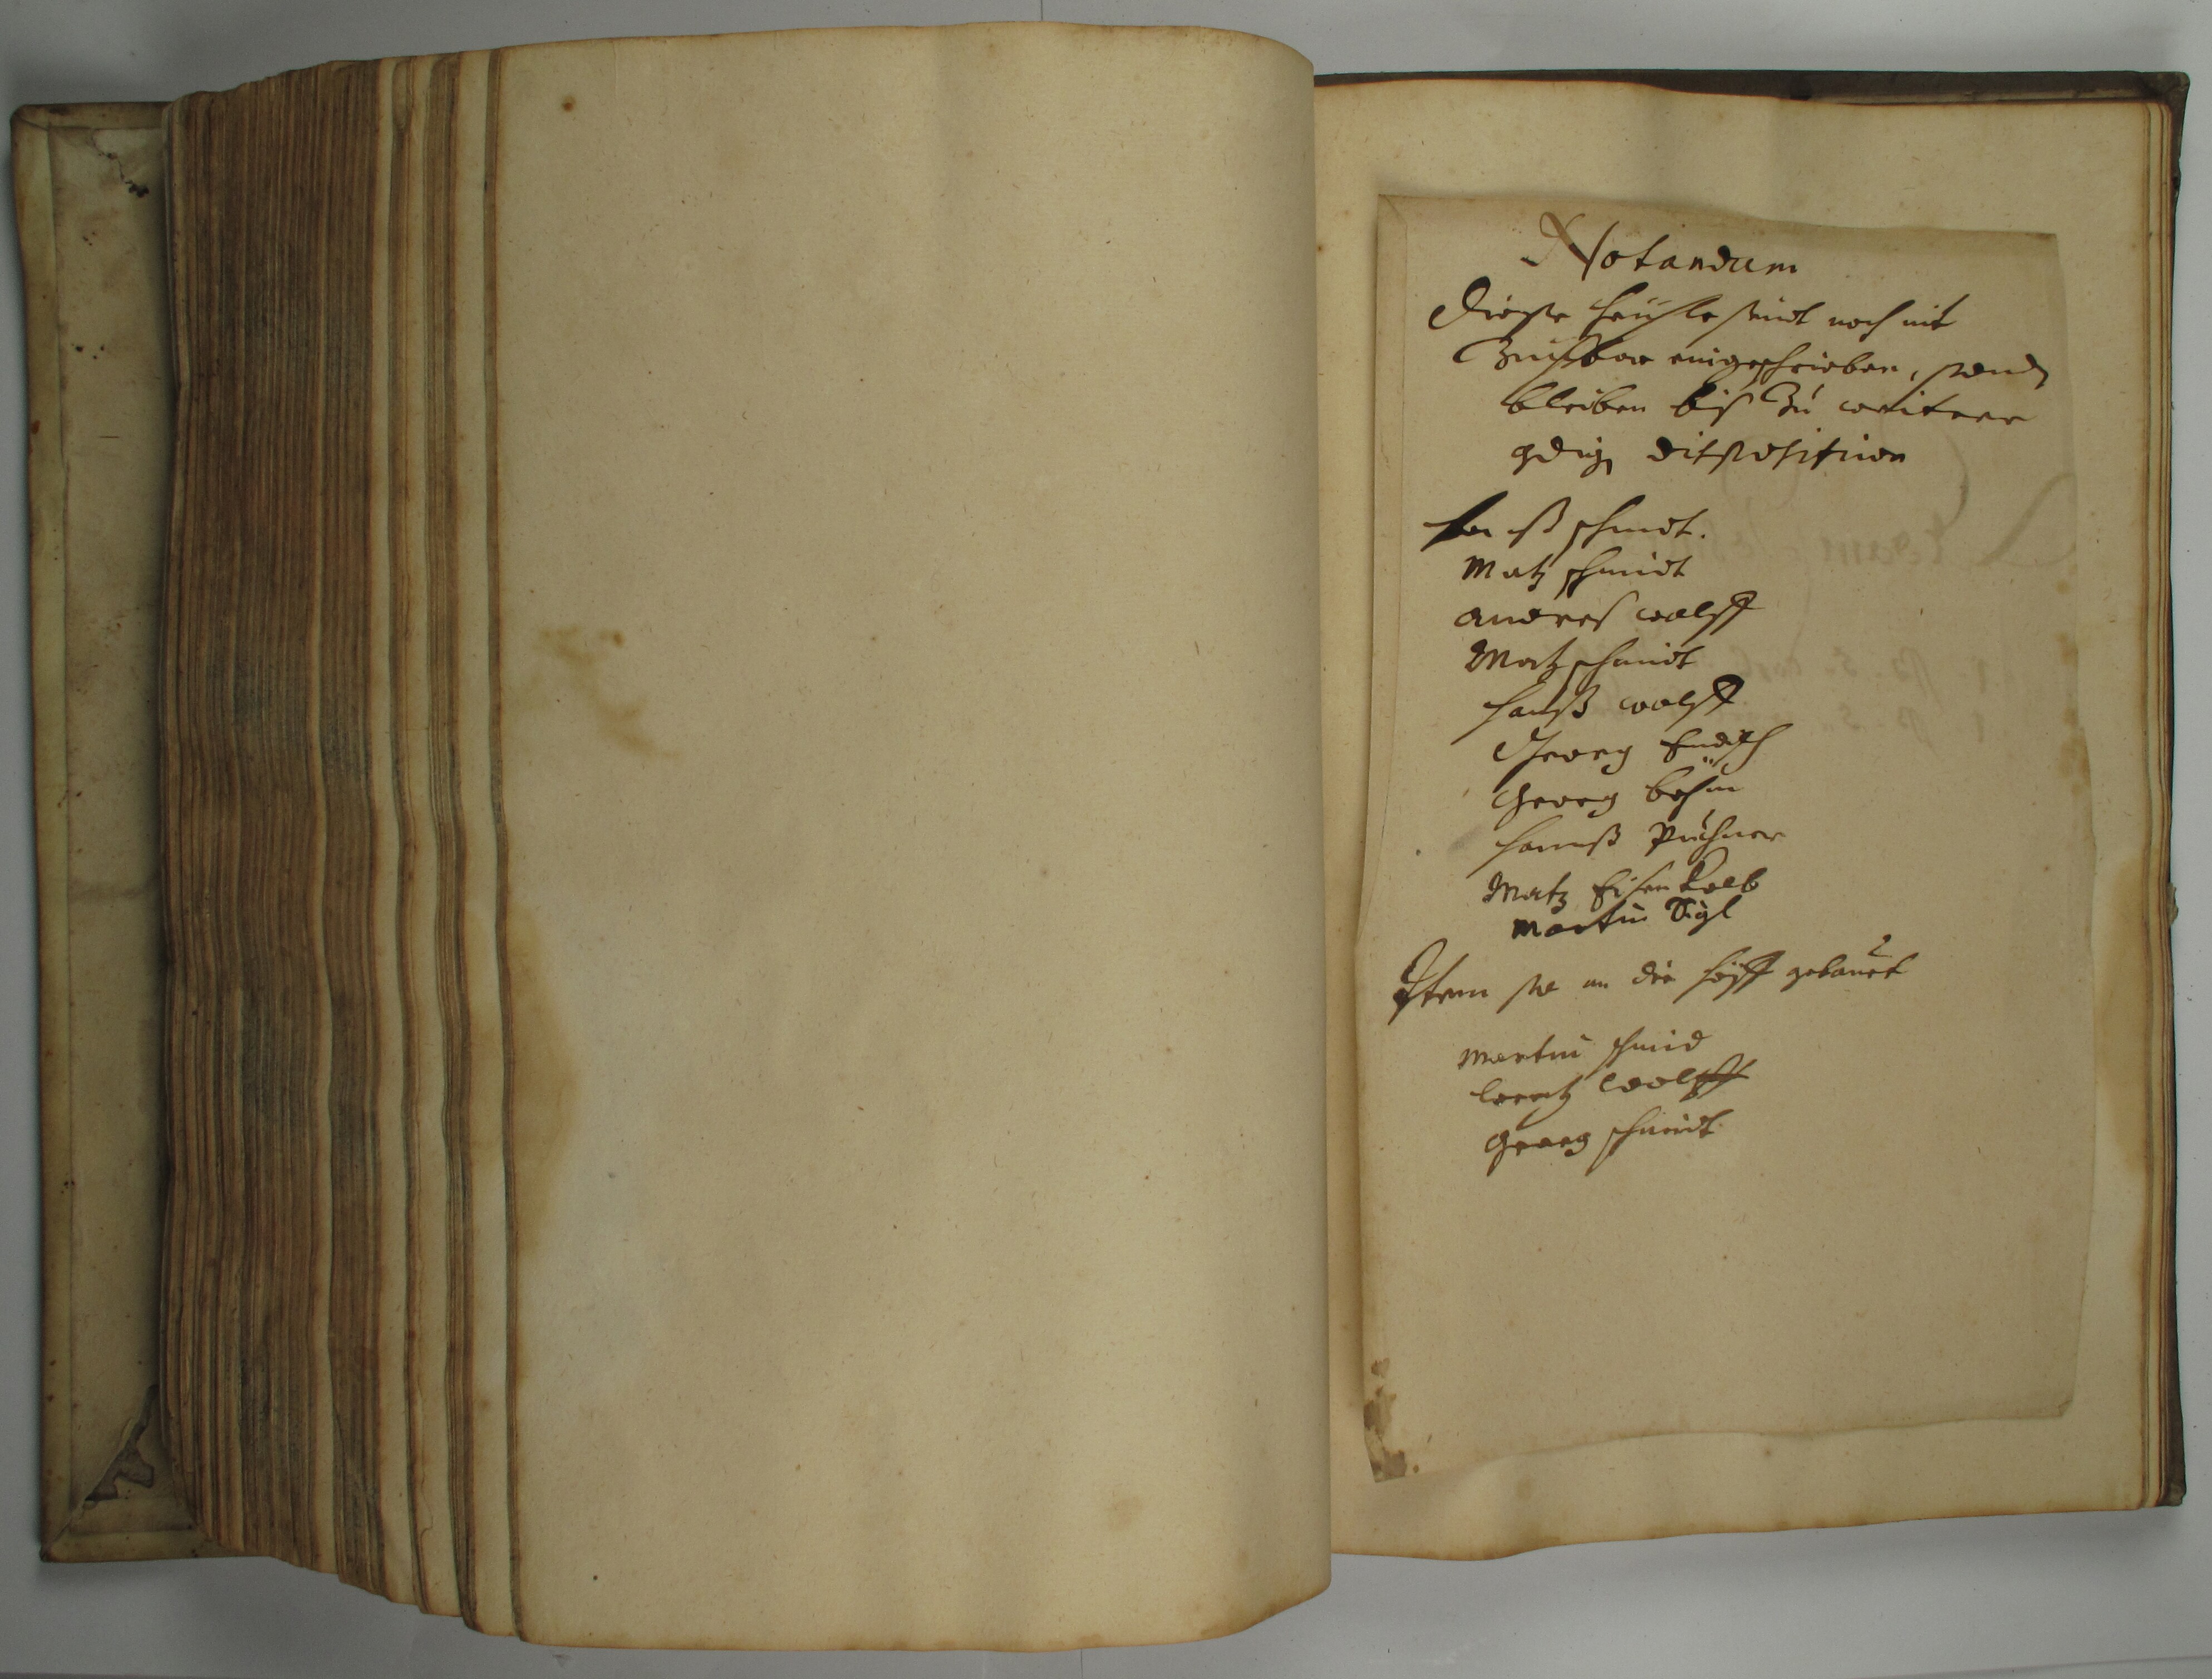 Notandum
Dieße heußle seindt noch nit
Zinßbar eingeschrieben,
bleiben biß Zu weitrer
gdig disposition
Hanß schmidt.
Matz schmidt
Andreß wolff
Matz schmidt
Hanß wolff
Georg Endisch
Georg böhm
Hannß Puchner
Matz Eisenkolb
Martin Sigl
Item so an die höff gebauet
Martin schmid
Lorentz Wolff
Georg schmidt